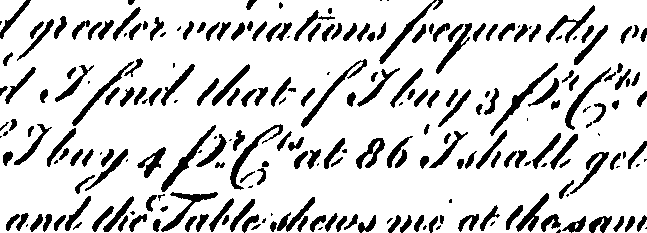 greater variations frequently
I find that if I buy 3 P.r C.ts
I buy 4 P.r C.ts at 86 I shall get
and the Table shews me at the sam